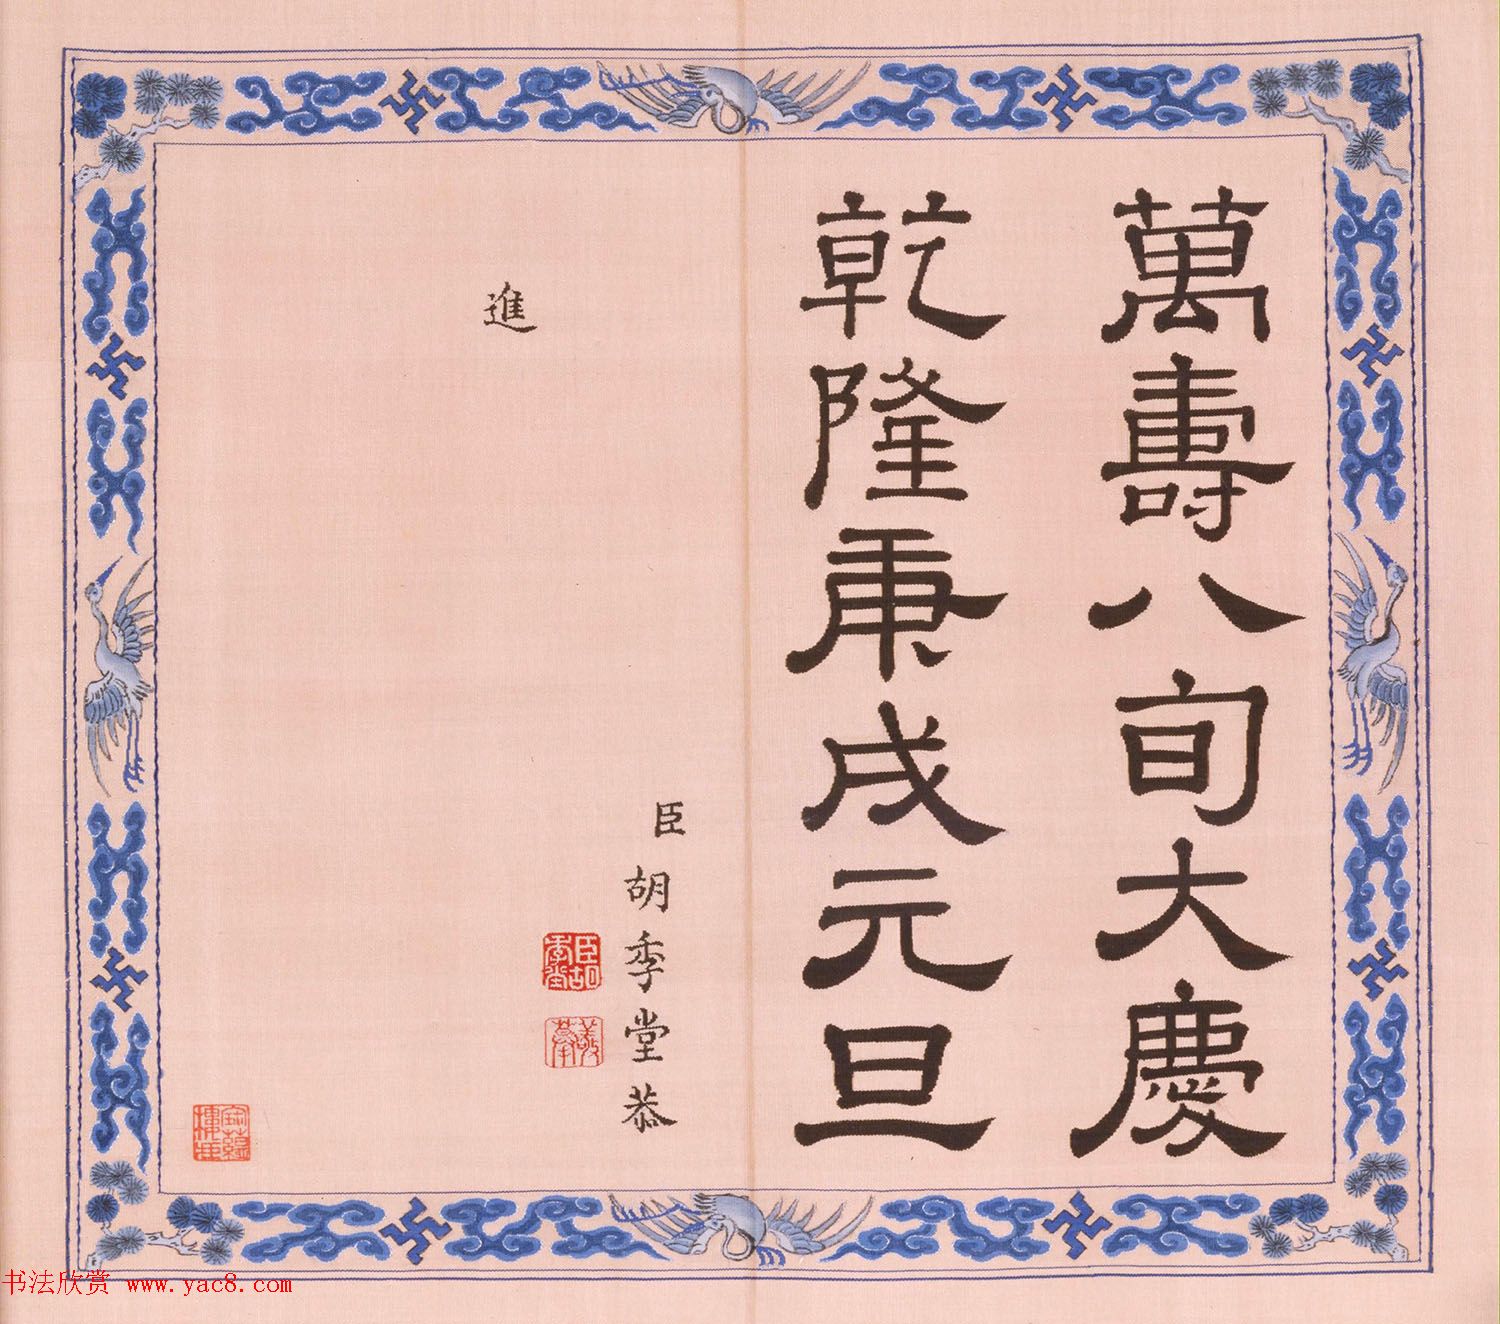 萬壽八旬大慶
乾隆庚戌元旦
臣胡季堂恭
進
臣胡季堂
書法欣赏 www.yac8.com